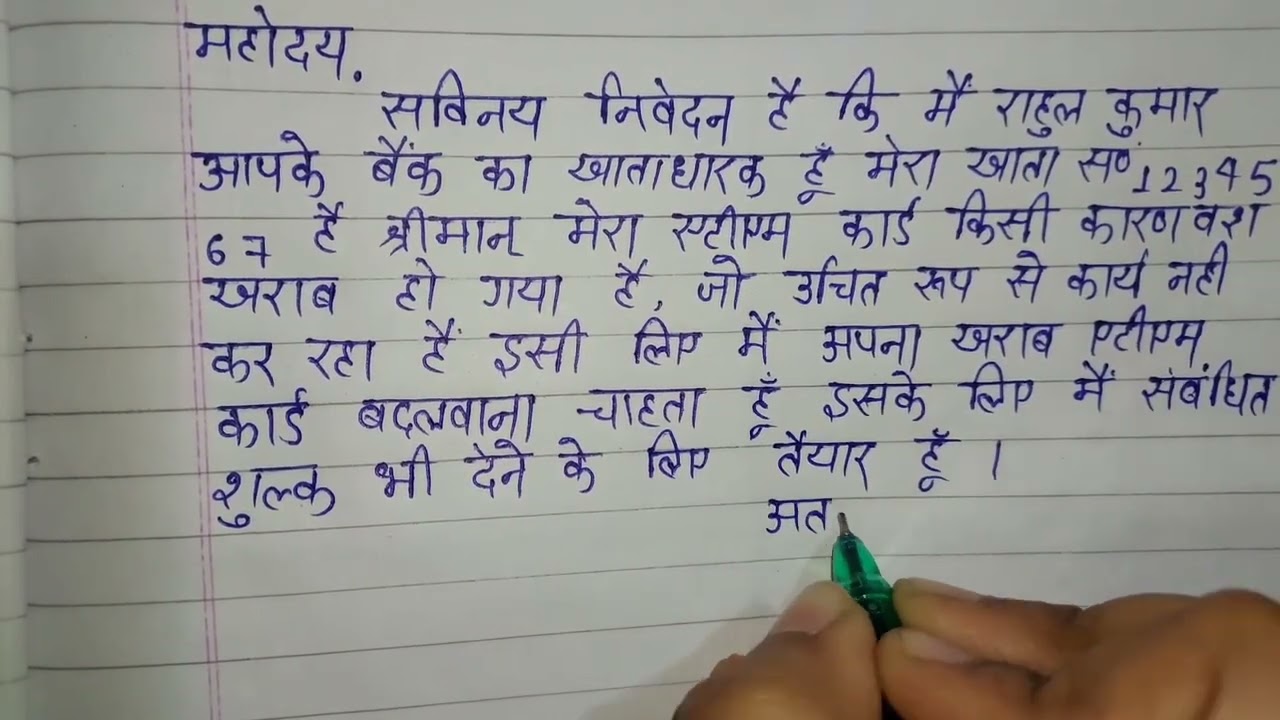 महोदय.
सविनय निवेदन है कि मैं राहुल कुमार
आपके बैंक का खाताधारक हूँ मेरा खाता सं॰ 12345
67 है श्रीमान् मेरा एटीएम कार्ड किसी कारण वश
खराब हो गया है, जो उचित रूप से कार्य नही
कर रहा हैं इसी लिए मैं अपना खराब एटीएम
कार्ड बदलवाना चाहता हूँ इसके लिए मैं संबंधित
शुल्क भी देने के लिए तैयार हूँ ।
अत